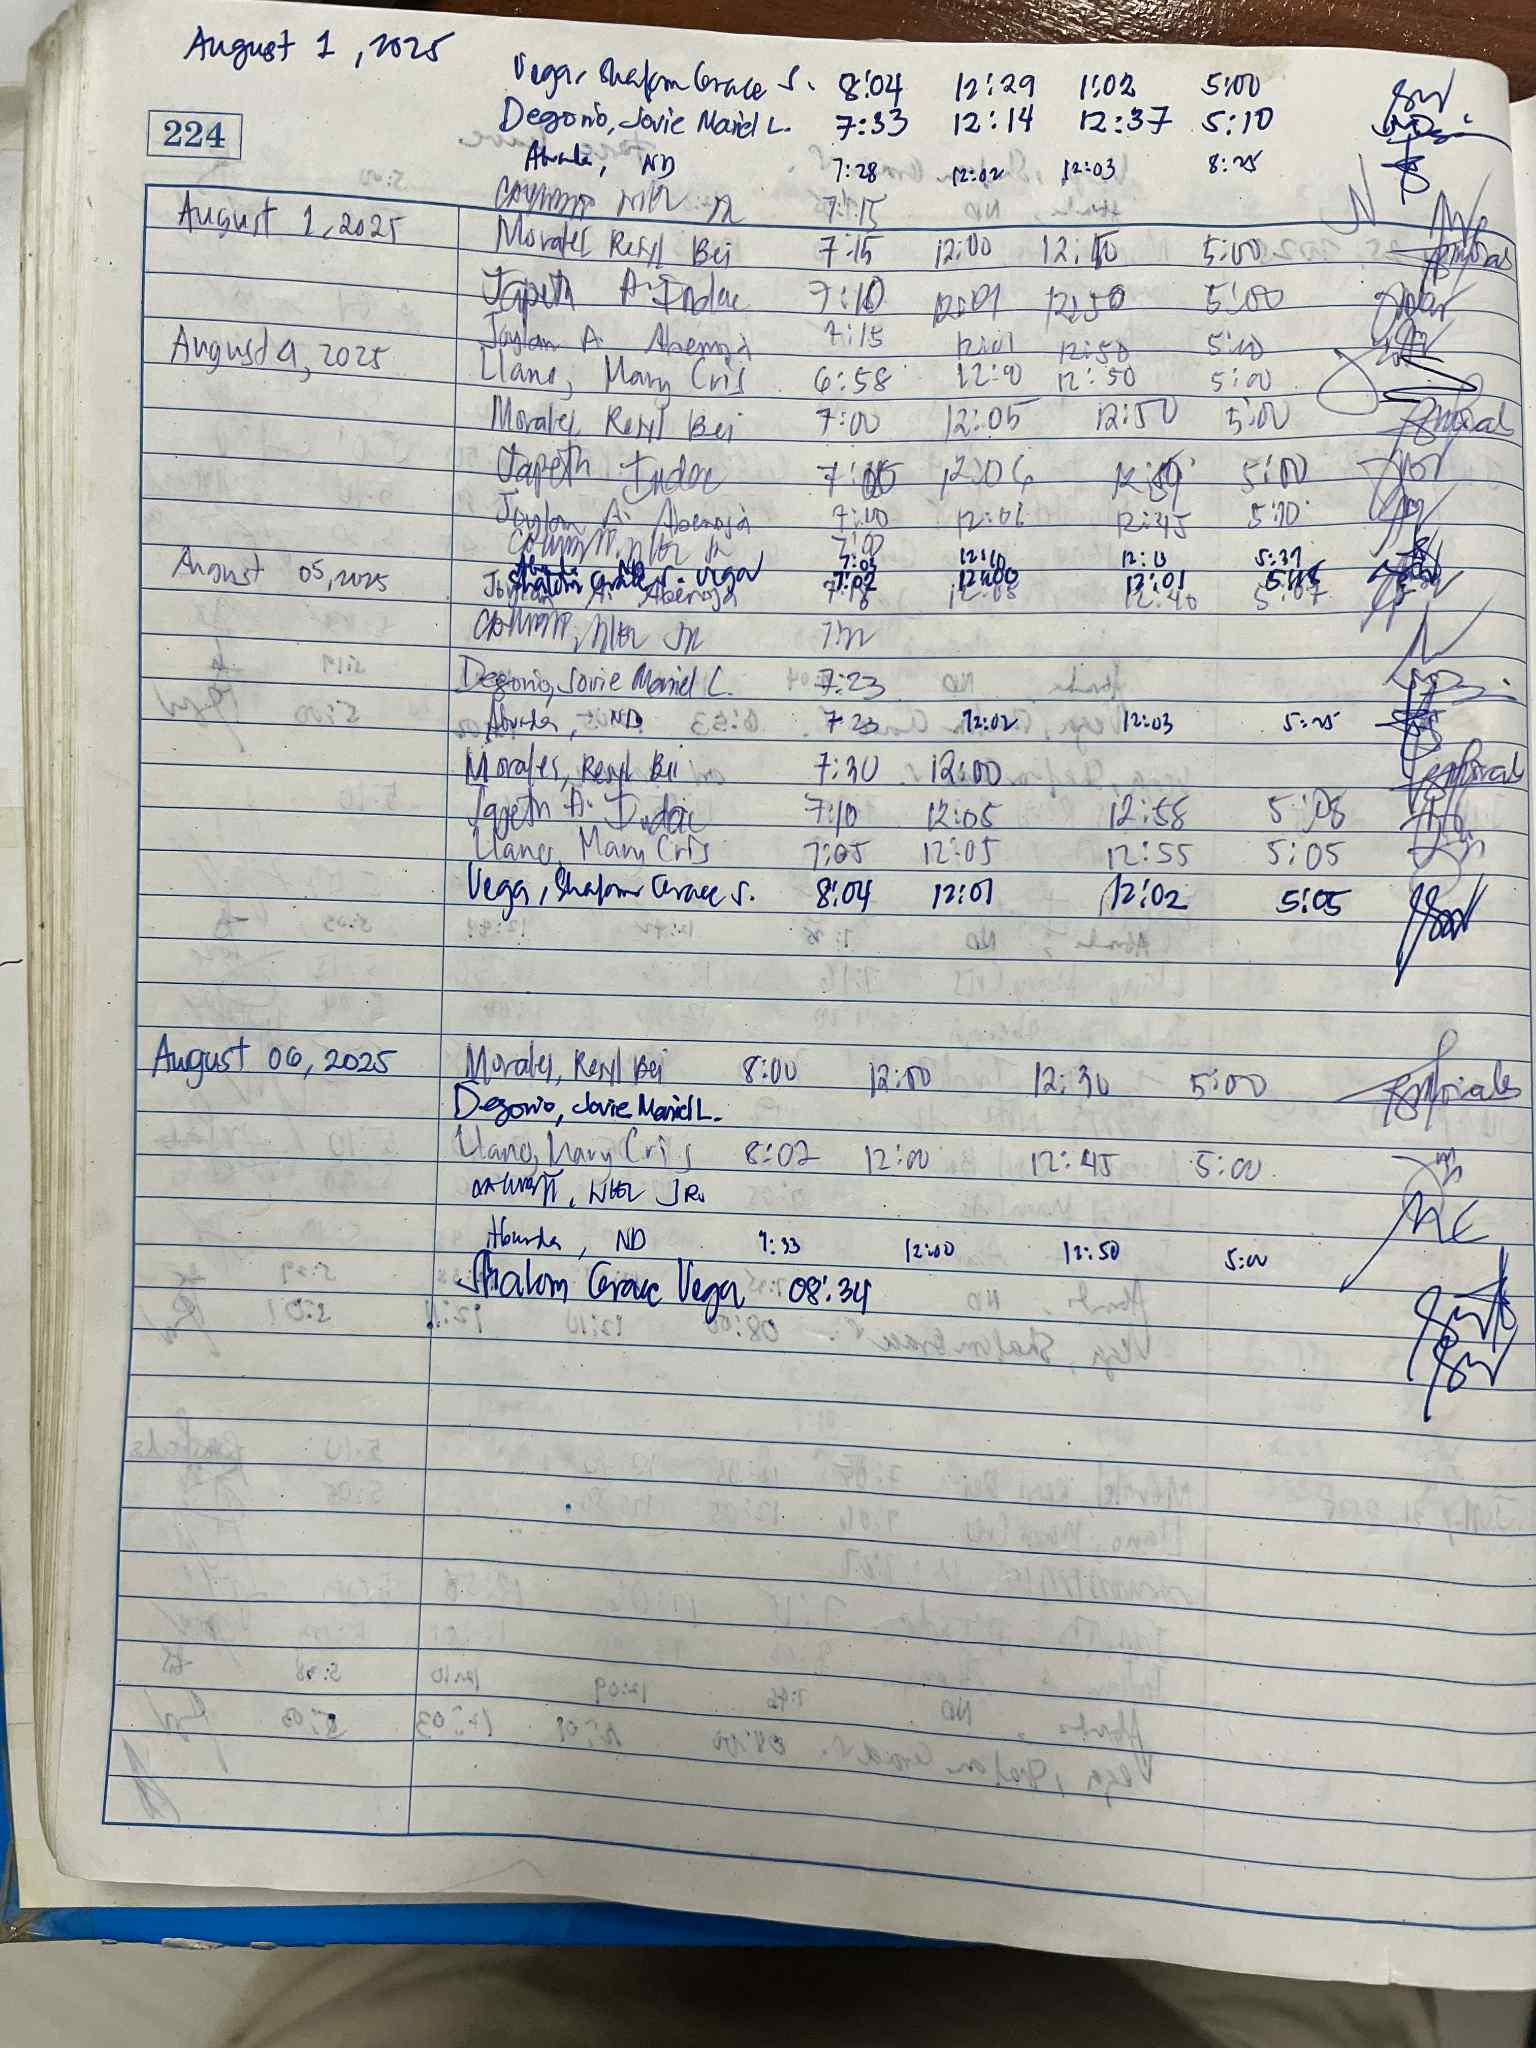 August 1, 2025
Vega, Shalom Grace S. 8:04 12:29 1:02 5:00
Degorio, Jovie Mariel L. 7:33 12:14 12:37 5:10
224
Abunda, ND 7:28 12:02 12:03 8:25
7:15
August 1, 2025 Morales Resyl Bei 7:15 12:00 12:10 5:00
Japeth A. Indac 7:10 12:01 12:50 5:00
Joylan A. Abenoja 7:15 12:01 12:50 5:00
August 4, 2025 Llano, Mary Cris 6:58 12:50 5:00
Morales Resyl Bei 7:00 12:05 12:50 5:00
Japeth Indac 12:06 5:00
Joylan A. Abenoja 7:00 12:01 12:45 5:10
JR 7:00
Abunda, ND 7:03 12:10 12:11 5:37
Shalom Grace S. Vega 7:02 12:00 12:01
August 05, 2025 Joylan A. Abenoja 12:03 12:40 5:07
JR
Degorio, Jovie Mariel L. 7:23
Abunda, ND 7:23 12:02 12:03 5:25
Morales, Resyl Bei 7:30 12:00
Japeth A. Indac 7:10 12:05 12:58 5:08
Llano, Mary Cris 7:05 12:05 12:55 5:05
Vega, Shalom Grace S. 8:04 12:01 12:02 5:05
August 06, 2025 Morales, Resyl Bei 8:00 12:00 12:30 5:00
Degorio, Jovie Mariel L.
Llano, Mary Cris 8:02 12:00 12:45 5:00
JR.
Abunda, ND 7:33 12:00 12:50 5:00
Shalom Grace Vega 08:34